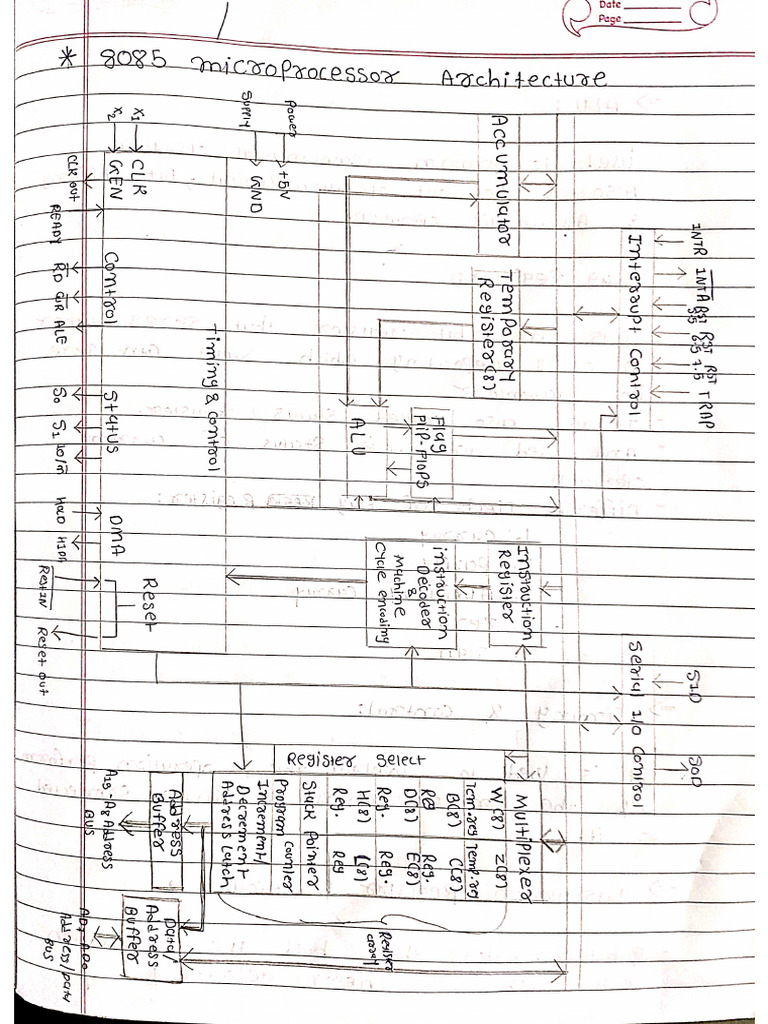 Date
Page
* 8085 microprocessor Architecture
INTR INTA RST 5.5 RST 6.5 RST 7.5 TRAP
Interrupt Control
SID
SOD
Serial I/O Control
Accumulator
Temporary
Register(8)
Flag
Flip-Flops
ALU
Instruction
Register
instruction
Decoder
&
Machine
Cycle encoding
Multiplexer
W(8)
Tem.reg
Z(8)
Temp.reg
B(8)
Reg
C(8)
Reg.
D(8)
Reg.
E(8)
Reg.
H(8)
Reg.
L(8)
Reg
Stack Pointer
Program Counter
Increment/
Decrement
Address Latch
Register Select
Register
array
Power
Supply
+5V
GND
Timing & Control
X1
X2
CLK
GEN
Control
Status
DMA
Reset
CLK out
READY
RD
ALE
S0
S1
IO/M
Hold
Reset out
Address
Buffer
A15-A8 Address
BUS
Data/
Address
Buffer
AD7-AD0
Address/Data
BUS